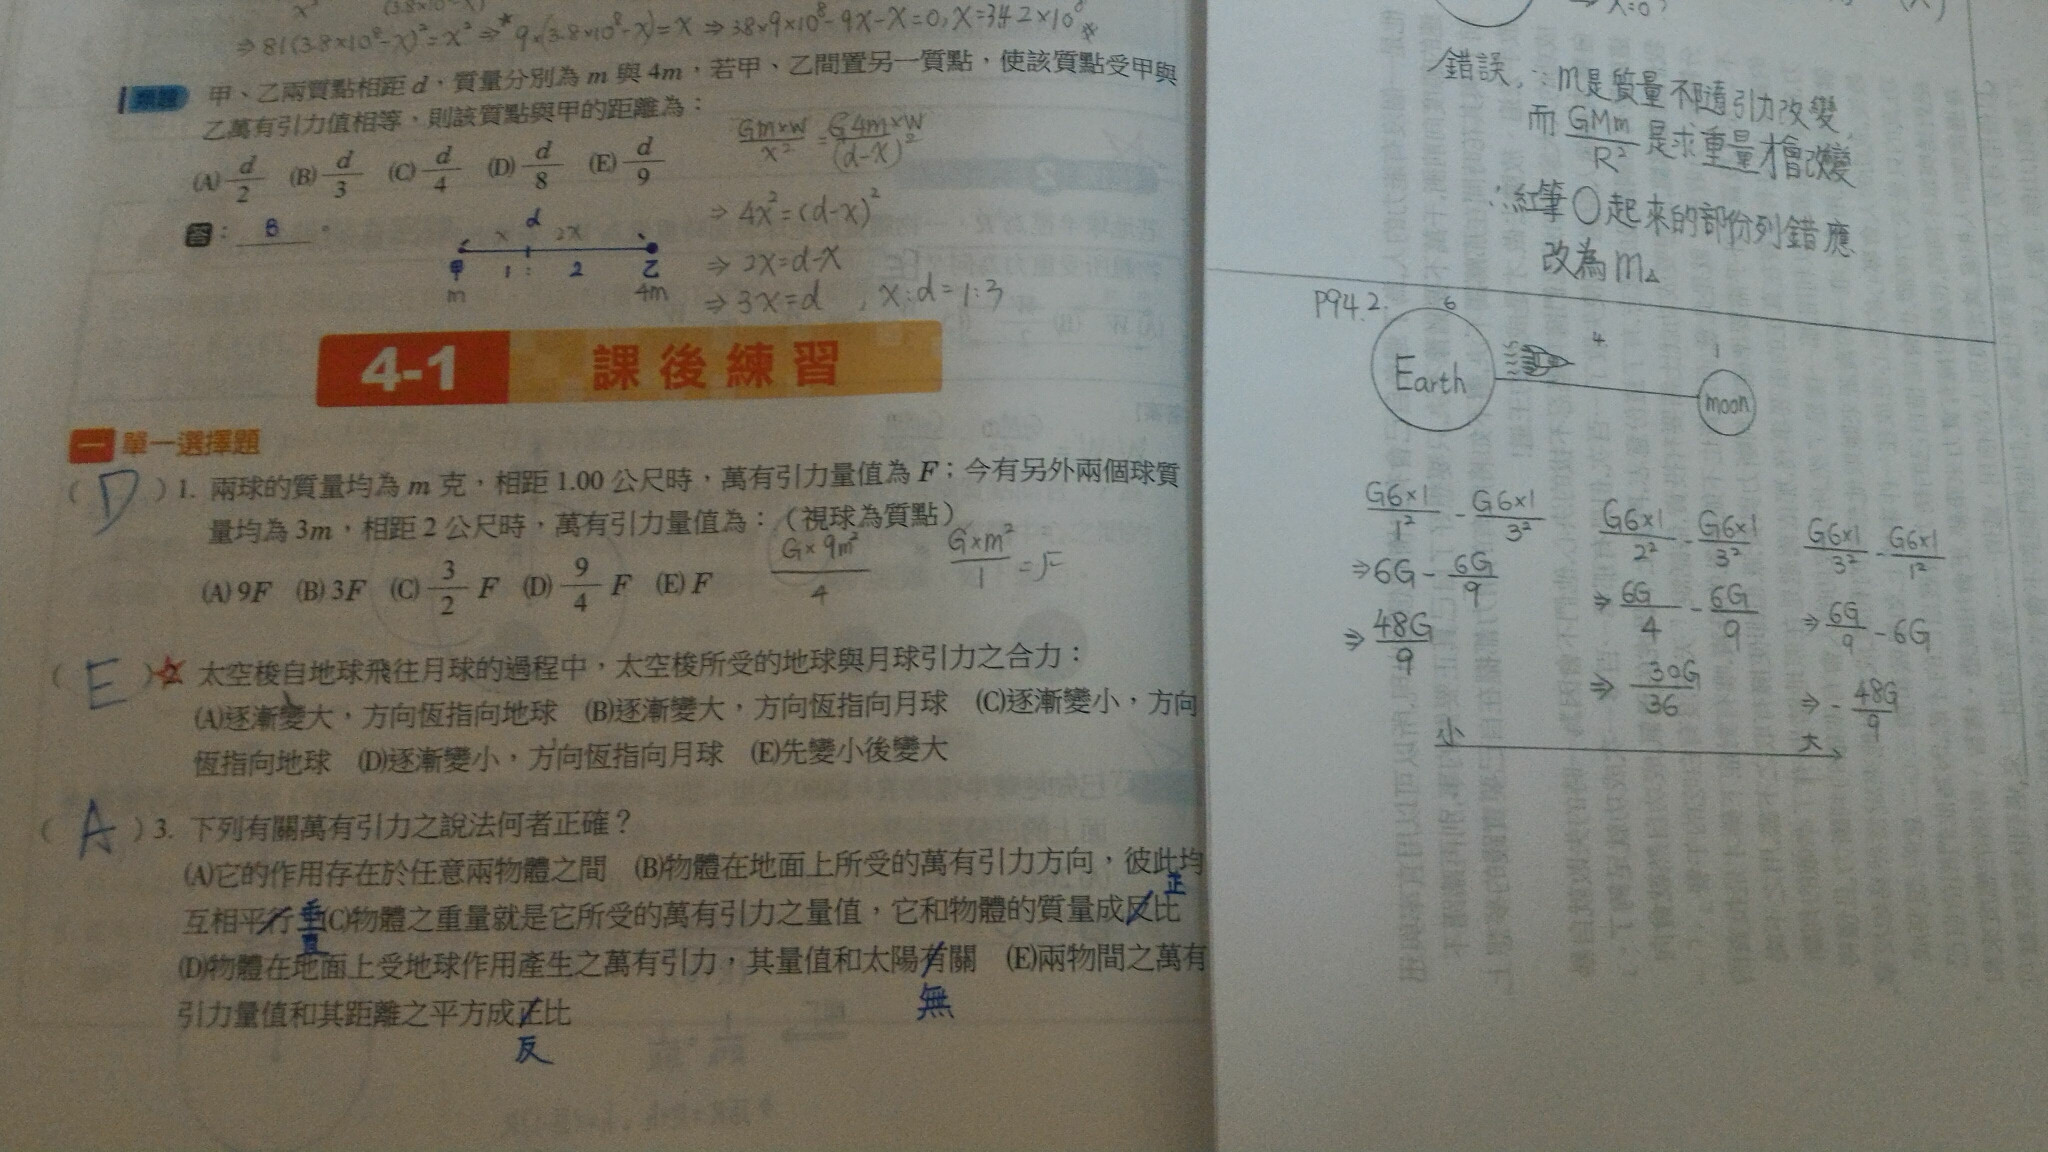 ⇒81(3.8×10⁸-x)²=x² ⇒ 9×(3.8×10⁸-x)=x ⇒ 38×9×10⁸-9x-x=0, x=342×10⁸
類題 甲、乙兩質點相距 d，質量分別為 m 與 4m，若甲、乙間置另一質點，使該質點受甲與
乙萬有引力值相等，則該質點與甲的距離為：
(A) d/2 (B) d/3 (C) d/4 (D) d/8 (E) d/9
答：B。
d
x 2x
甲 1 : 2 乙
m 4m
Gm×w/x² = G4m×w/(d-x)²
⇒ 4x²=(d-x)²
⇒ 2x=d-x
⇒ 3x=d , x:d=1:3
4-1 課後練習
一 單一選擇題
( D ) 1. 兩球的質量均為 m 克，相距 1.00 公尺時，萬有引力量值為 F；今有另外兩個球質
量均為 3m，相距 2 公尺時，萬有引力量值為：（視球為質點）
(A) 9F (B) 3F (C) 3/2 F (D) 9/4 F (E) F
G×9m²/4 G×m²/1 =F
( E ) 2. 太空梭自地球飛往月球的過程中，太空梭所受的地球與月球引力之合力：
(A)逐漸變大，方向恆指向地球 (B)逐漸變大，方向恆指向月球 (C)逐漸變小，方向
恆指向地球 (D)逐漸變小，方向恆指向月球 (E)先變小後變大
( A ) 3. 下列有關萬有引力之說法何者正確？
(A)它的作用存在於任意兩物體之間 (B)物體在地面上所受的萬有引力方向，彼此均
正
互相平行 垂直 (C)物體之重量就是它所受的萬有引力之量值，它和物體的質量成反比
(D)物體在地面上受地球作用產生之萬有引力，其量值和太陽有關 (E)兩物間之萬有
無
引力量值和其距離之平方成正比
反
⇒ x=0
錯誤，∵m是質量不隨引力改變，
而 GMm/R² 是求重量才會改變
∴紅筆○起來的部份列錯應
改為 m
P94.2.
6 4 1
Earth moon
G6×1/1² - G6×1/3²
⇒ 6G - 6G/9
⇒ 48G/9
G6×1/2² - G6×1/3²
⇒ 6G/4 - 6G/9
⇒ 30G/36
G6×1/3² - G6×1/1²
⇒ 6G/9 - 6G
⇒ - 48G/9
小 大